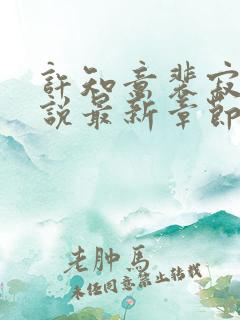 許知意裴寂
說最新章節
老肿馬
未经同意禁止转载